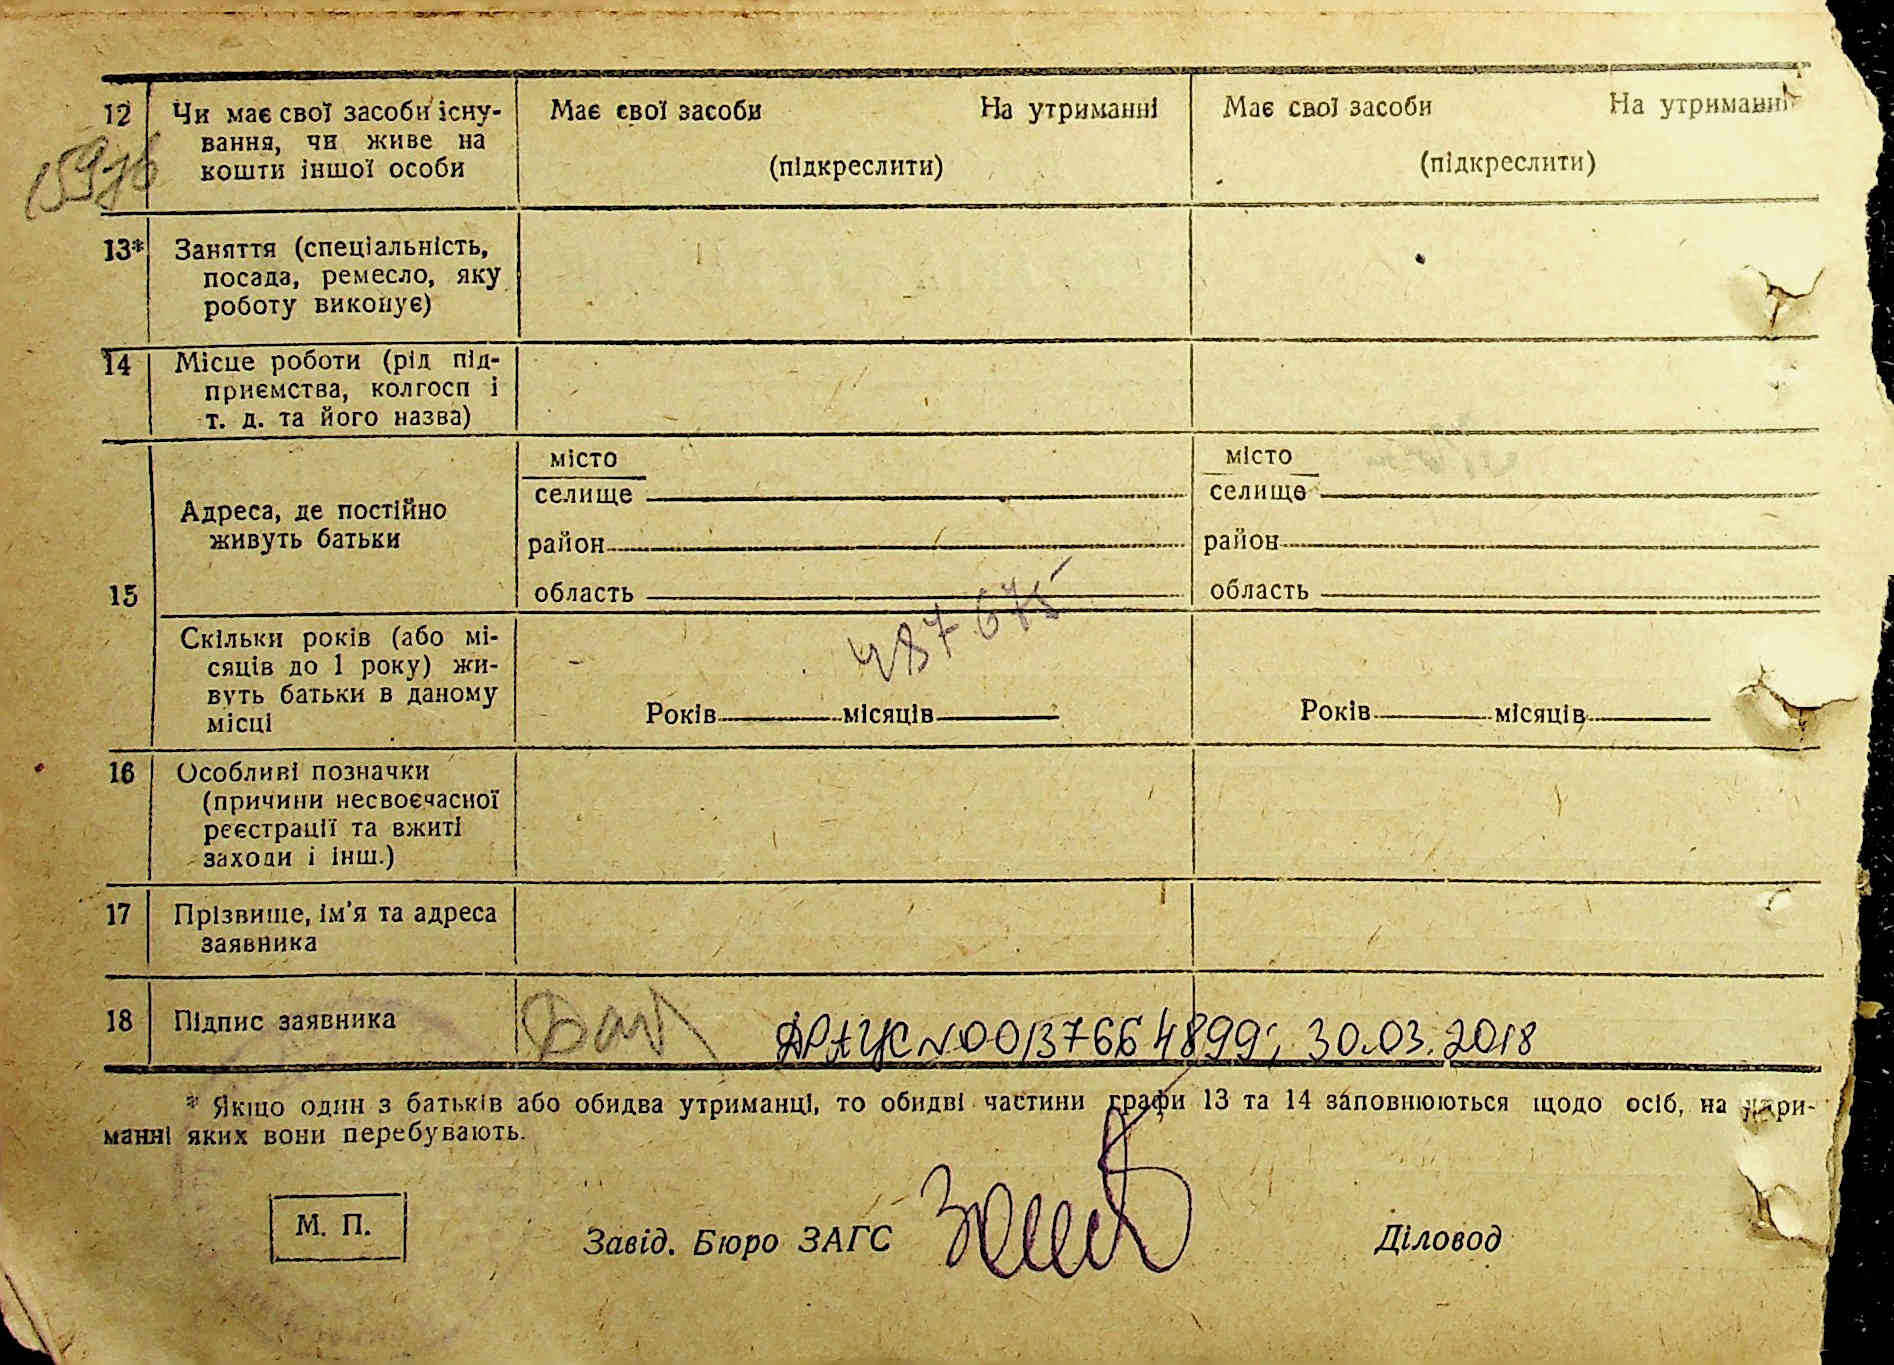 12 Чи має свої засоби існу- Має свої засоби На утриманні Має свої засоби На утриманні
вання, чи живе на
кошти іншої особи (підкреслити) (підкреслити)
13* Заняття (спеціальність,
посада, ремесло, яку
роботу виконує)
14 Місце роботи (рід під-
приємства, колгосп і
т. д. та його назва)
місто місто
селище селище
Адреса, де постійно
живуть батьки
район район
15 область область
487675
Скільки років (або мі-
сяців до 1 року) жи-
вуть батьки в даному
місці
Років місяців Років місяців
16 Особливі позначки
(причини несвоєчасної
реєстрації та вжиті
заходи і інш.)
17 Прізвище, ім'я та адреса
заявника
18 Підпис заявника ДРАЦС №00137664899; 30.03.2018
* Якщо один з батьків або обидва утриманці, то обидві частини графи 13 та 14 заповнюються щодо осіб, на утри-
манні яких вони перебувають.
М. П.
Завід. Бюро ЗАГС Діловод